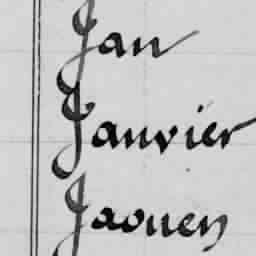 Jan
Janvier
Jaouen